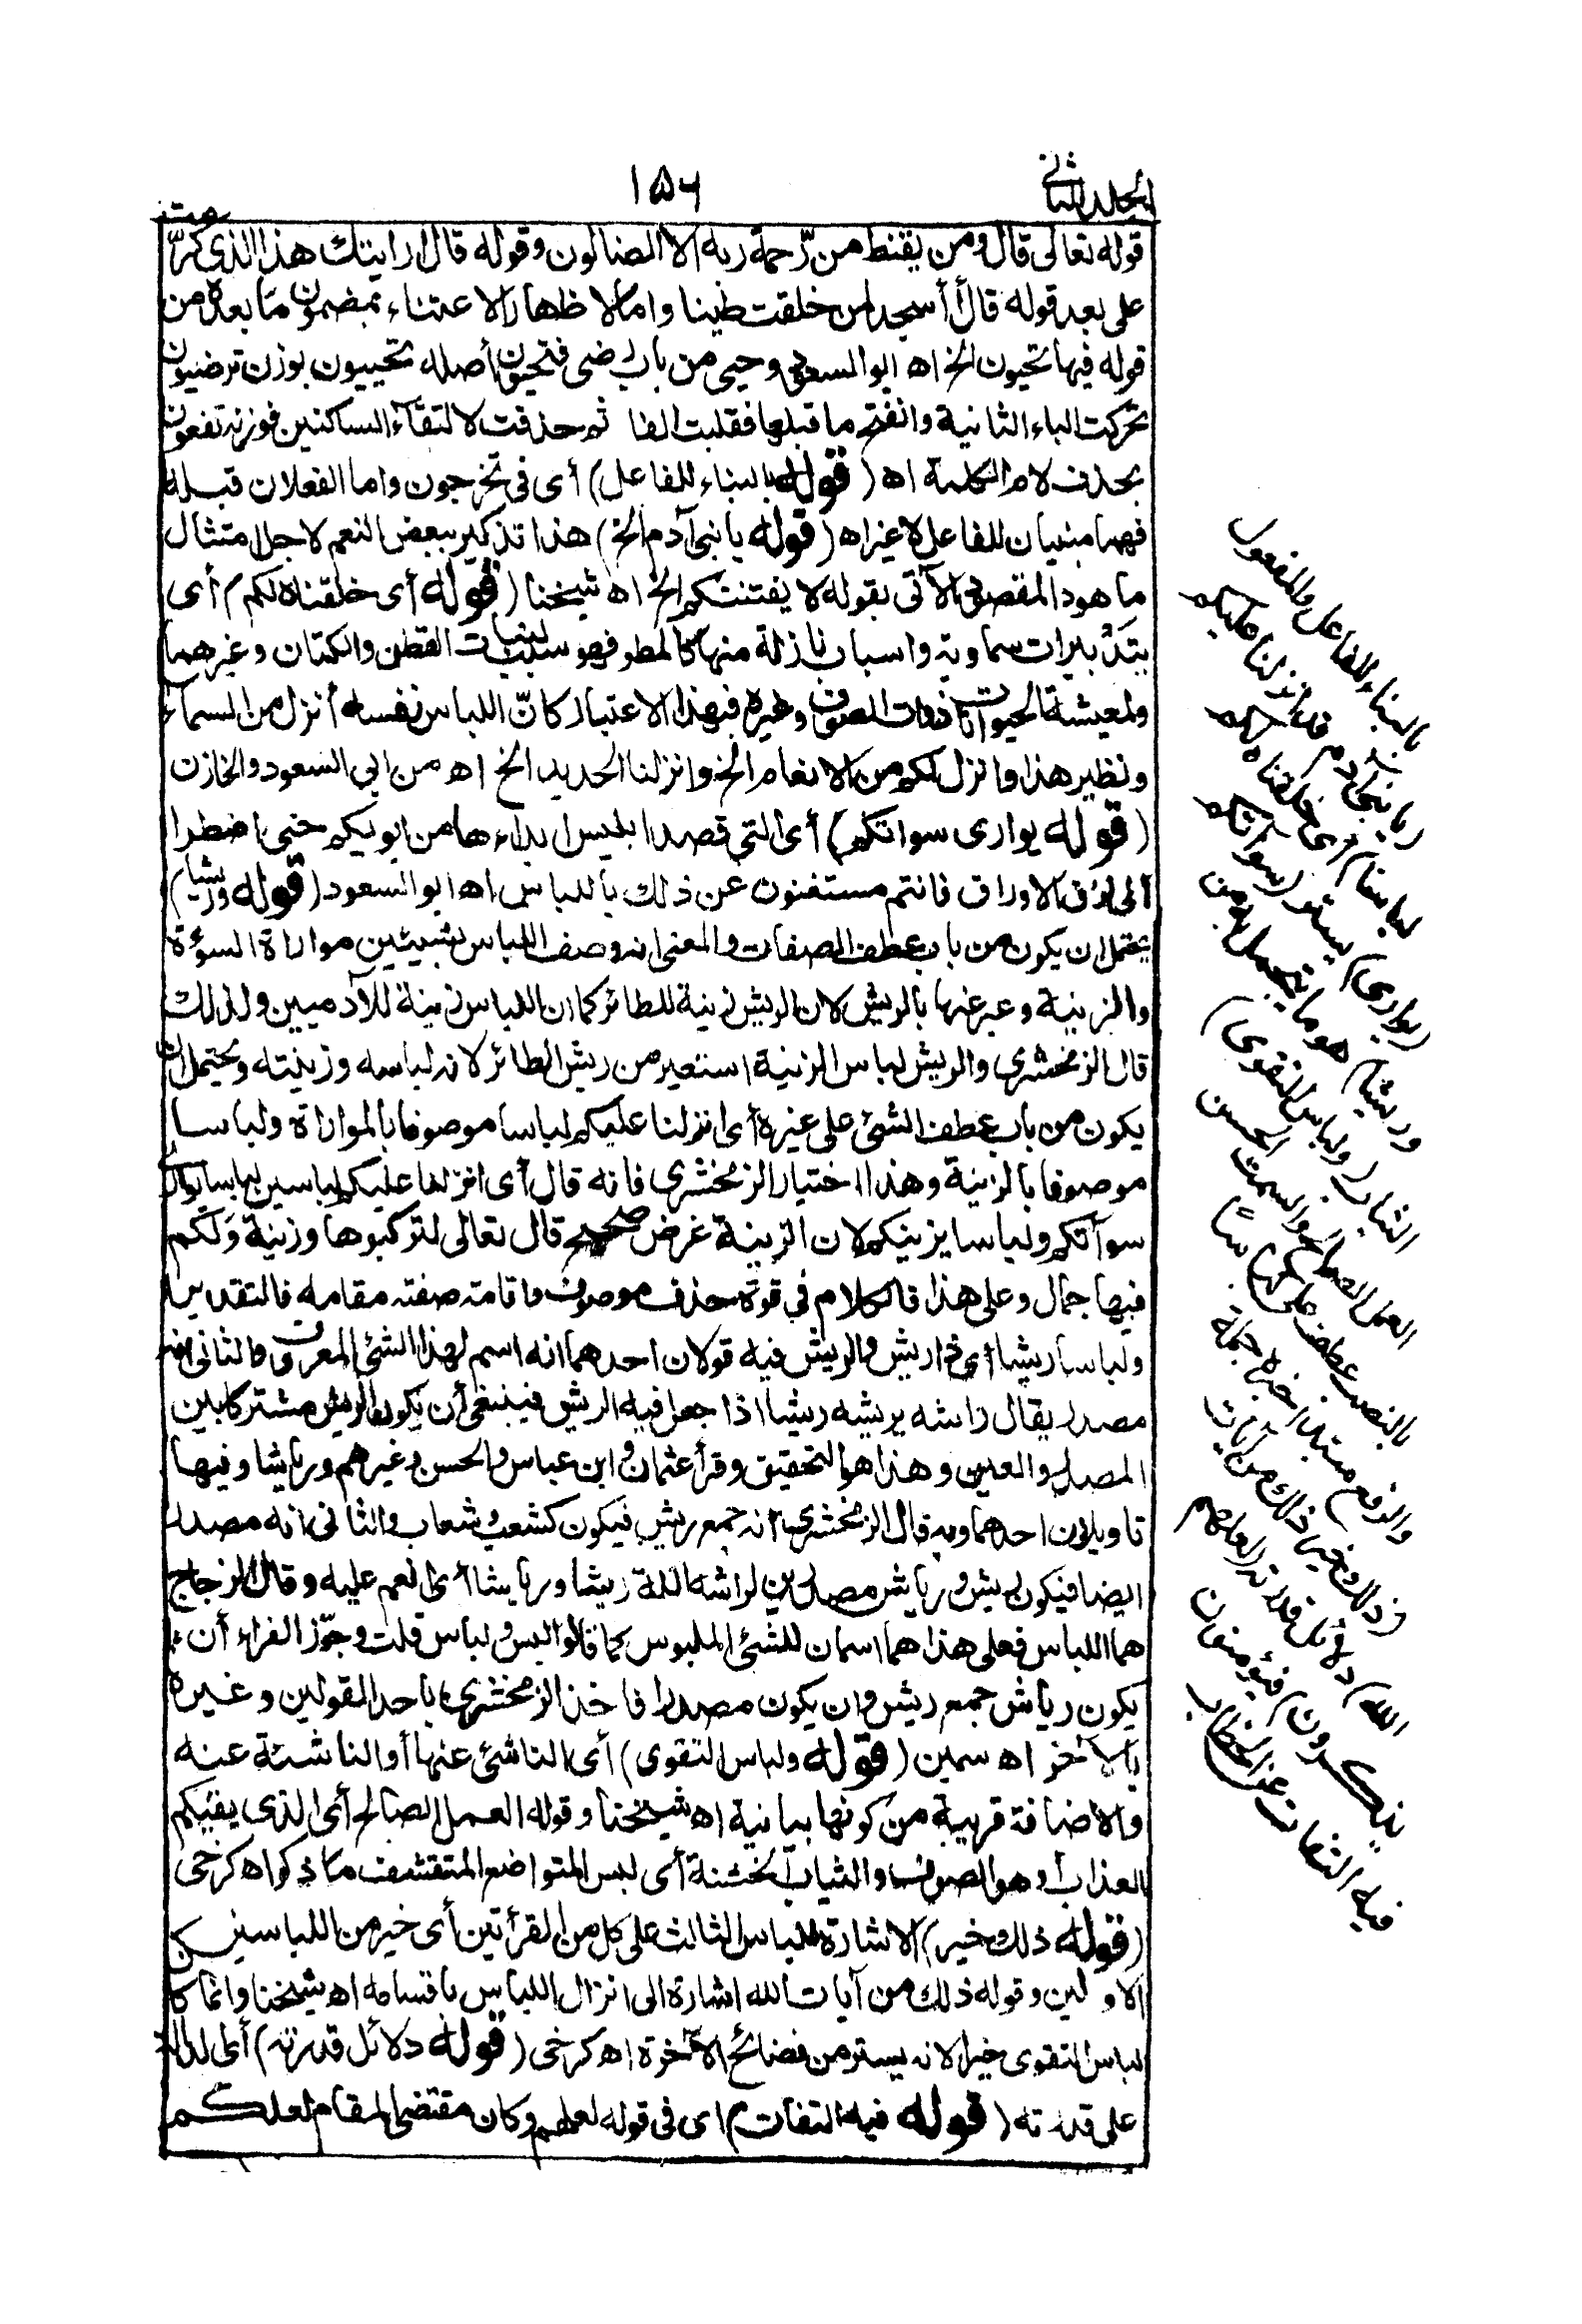 المجلد الثانى
١٥٦
قوله تعالى قال ومن يقنط من رّحمة ربه الا الضالون وقوله قال ارايتك هذا الذى كرّمت
على بعد قوله قال أأسجد لمن خلقت طينا واما لاظهار الاعتناء بمضمون ما بعده من
قوله فيها تحيون الخ اه ابو السعود وحيى من باب رضى فتحيون أصله تحييون بوزن ترضيون
تحركت الياء الثانية وانفتح ما قبلها فقلبت الفا ثم حذفت لالتقاء الساكنين فوزنه تفعون
بحذف لام الكلمة اه (قوله بالبناء للفاعل) أى فى تخرجون واما الفعلان قبله
فهما مبنيان للفاعل لا غير اه (قوله يا بنى آدم الخ) هذا تذكير ببعض النعم لاجل امتثال
ما هو المقصود الآتى بقوله لا يفتننكم الخ اه شيخنا (قوله أى خلقناه لكم) أى
بتدبيرات سماوية واسباب نازلة منها كالمطر فهو سبب لنبات القطن والكتان وغيرهما
ولمعيشة الحيوانات ذوات الصوف وغيره فبهذا الاعتبار كانّ اللباس نفسه أنزل من السماء
ونظير هذا وانزل لكم من الانعام الخ وانزلنا الحديد الخ اه من ابى السعود والخازن
(قوله يوارى سواتكم) أى التى قصد ابليس ابداءها من ابويكم حتى اضطرا
الى لزق الاوراق فانتم مستغنون عن ذلك باللباس اه ابو السعود (قوله وريشا)
يحتمل ان يكون من باب عطف الصفات والمعنى انه وصف اللباس بشيئين مواراة السوءة
والزينة وعبر عنها بالريش لان الريش زينة للطائر كما ان اللباس زينة للآدميين ولذلك
قال الزمخشرى والريش لباس الزينة استعير من ريش الطائر لانه لباسه وزينته ويحتمل ان
يكون من باب عطف الشئ على غيره أى انزلنا عليكم لباسا موصوفا بالمواراة ولباسا
موصوفا بالزينة وهذا اختيار الزمخشرى فانه قال أى انزلنا عليكم لباسين لباسا يوارى
سوآتكم ولباسا يزينكم لان الزينة غرض صحيح قال تعالى لتركبوها وزينة ولكم
فيها جمال وعلى هذا فالكلام فى قوة حذف موصوف واقامة صفته مقامه فالتقدير
ولباسا ريشا أى ذا ريش والريش فيه قولان احدهما انه اسم لهذا الشئ المعروف والثانى انه
مصدر يقال راشه يريشه ريشا اذا جعل فيه الريش فينبغى أن يكون الريش مشتركا بين
المصدر والعين وهذا هو التحقيق وقرأ عثمان وابن عباس والحسن وغيرهم ورياشا وفيها
تاويلان احدهما وبه قال الزمخشرى انه جمع ريش فيكون كشعب وشعاب والثانى انه مصدر
ايضا فيكون ريش ورياش مصدرين لراشه الله ريشا ورياشا أى انعم عليه وقال الزجاج
هما اللباس فعلى هذا هما اسمان للشئ الملبوس كما قالوا لبس ولباس قلت وجوّز الفراء أن
يكون رياش جمع ريش وان يكون مصدرا فاخذ الزمخشرى باحد القولين وغيره
بالآخر اه سمين (قوله ولباس التقوى) أى الناشئ عنها أو الناشئة عنه
والاضافة قريبة من كونها بيانية اه شيخنا وقوله العمل الصالح أى الذى يقيكم
العذاب أو هو الصوف والثياب الخشنة أى لبس المتواضع المتقشف ما ذكر اه كرخى
(قوله ذلك خير) الاشارة للباس الثالث على كل من القرأتين أى خير من اللباسين
الاولين وقوله ذلك من آيات الله اشارة الى انزال اللباس باقسامه اه شيخنا وانما كان
لباس التقوى خيرا لانه يستر من فضائح الآخرة اه كرخى (قوله دلائل قدرته) أى الدالة
على قدرته (قوله فيه التفات) اى فى قوله لعلهم وكان مقتضى المقام لعلكم
بالبناء للفاعل والمفعول
(يا بنى آدم قد انزلنا عليكم
لباسا) أى خلقناه لكم
(يوارى) يستر (سوآتكم
وريشا) هو ما يتجمل به من
الثياب (ولباس التقوى)
العمل الصالح والسمت الحسن
بالنصب عطف على لباسا
والرفع مبتدأ خبره جملة
(ذلك خير ذلك من آيات
الله) دلائل قدرته (لعلهم
يذكرون) فيؤمنون
فيه التفات عن الخطاب